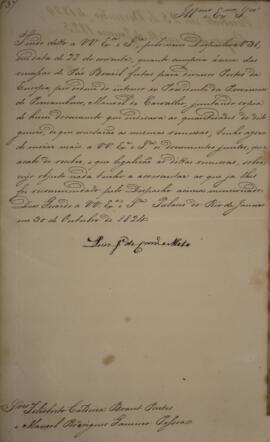 Ill.mos e Ex.mos Snr.es
Tendo dito a VV. Ex.as e S.as pelo meu Despacho N.º 31,
em data de 22 do corrente, quanto occorria àcerca das
remessas de Páo Brasil feitas para diversos Portos da
Europa, por ordem do intruso ex Presidente da Provincia
de Pernambuco, Manoel de Carvalho, juntando copia
de hum documento que indicava as quantidades do dito
genero, de que constavão as mesmas remessas; tenho agora
de enviar mais a VV. Ex.as e S.as documentos juntos, que
acabo de receber, e que legalisão as dittas remessas, sobre
cujo objecto nada tenho a accrescentar ao que já lhes
foi recommendado pelo Despacho acima mencionado.
Deos Guarde a VV. Ex.as e S.as Palacio do Rio de Janeiro
em 30 de Outubro de 1824.
Luiz J.e de Carv.o e Mello
Snr.es Felisberto Caldeira Brant Pontes
e Manoel Rodrigues Gameiro Pessoa